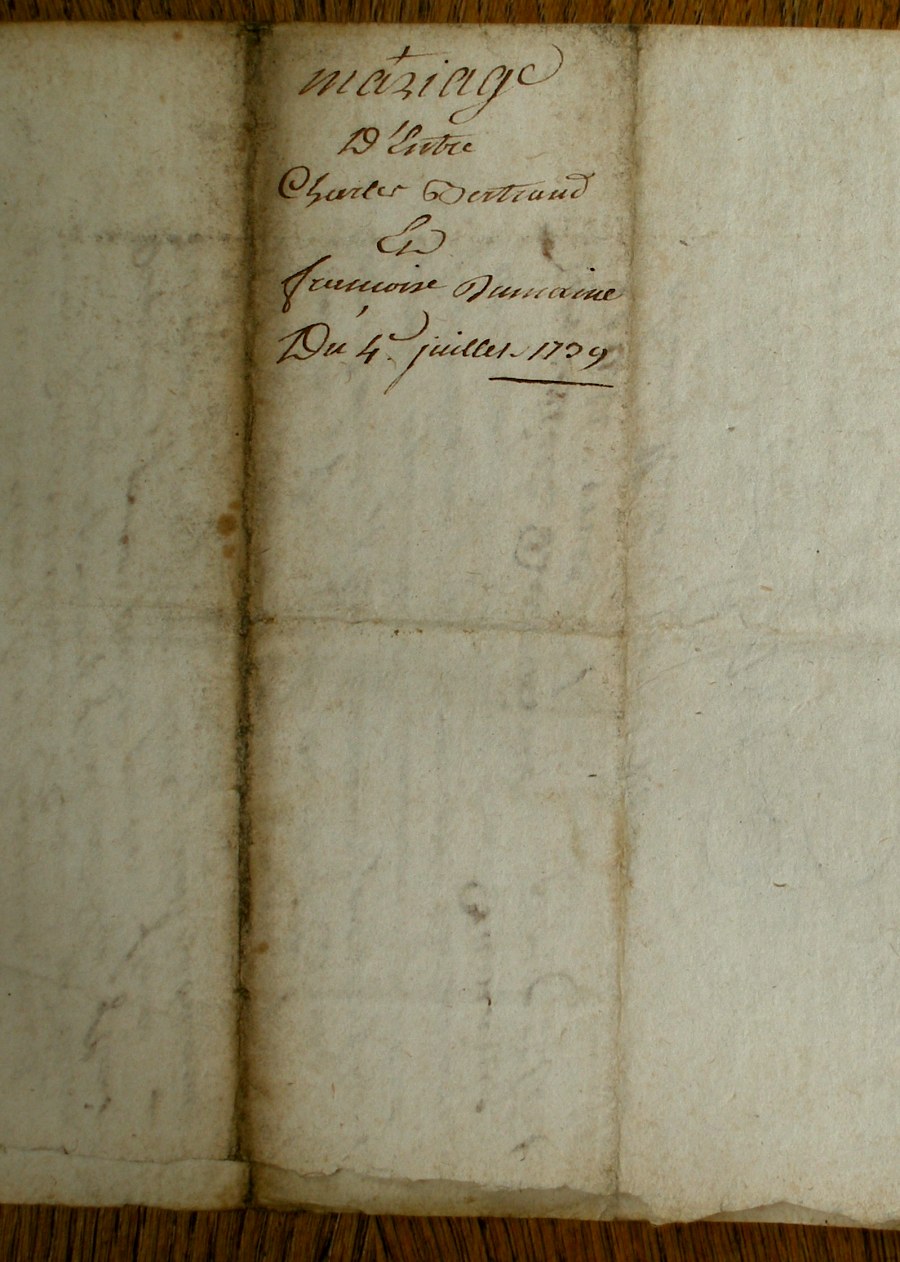 mariage
D'Entre
Charles Bertrand
Et
francoise Dumaine
Du 4e. juillet 1739